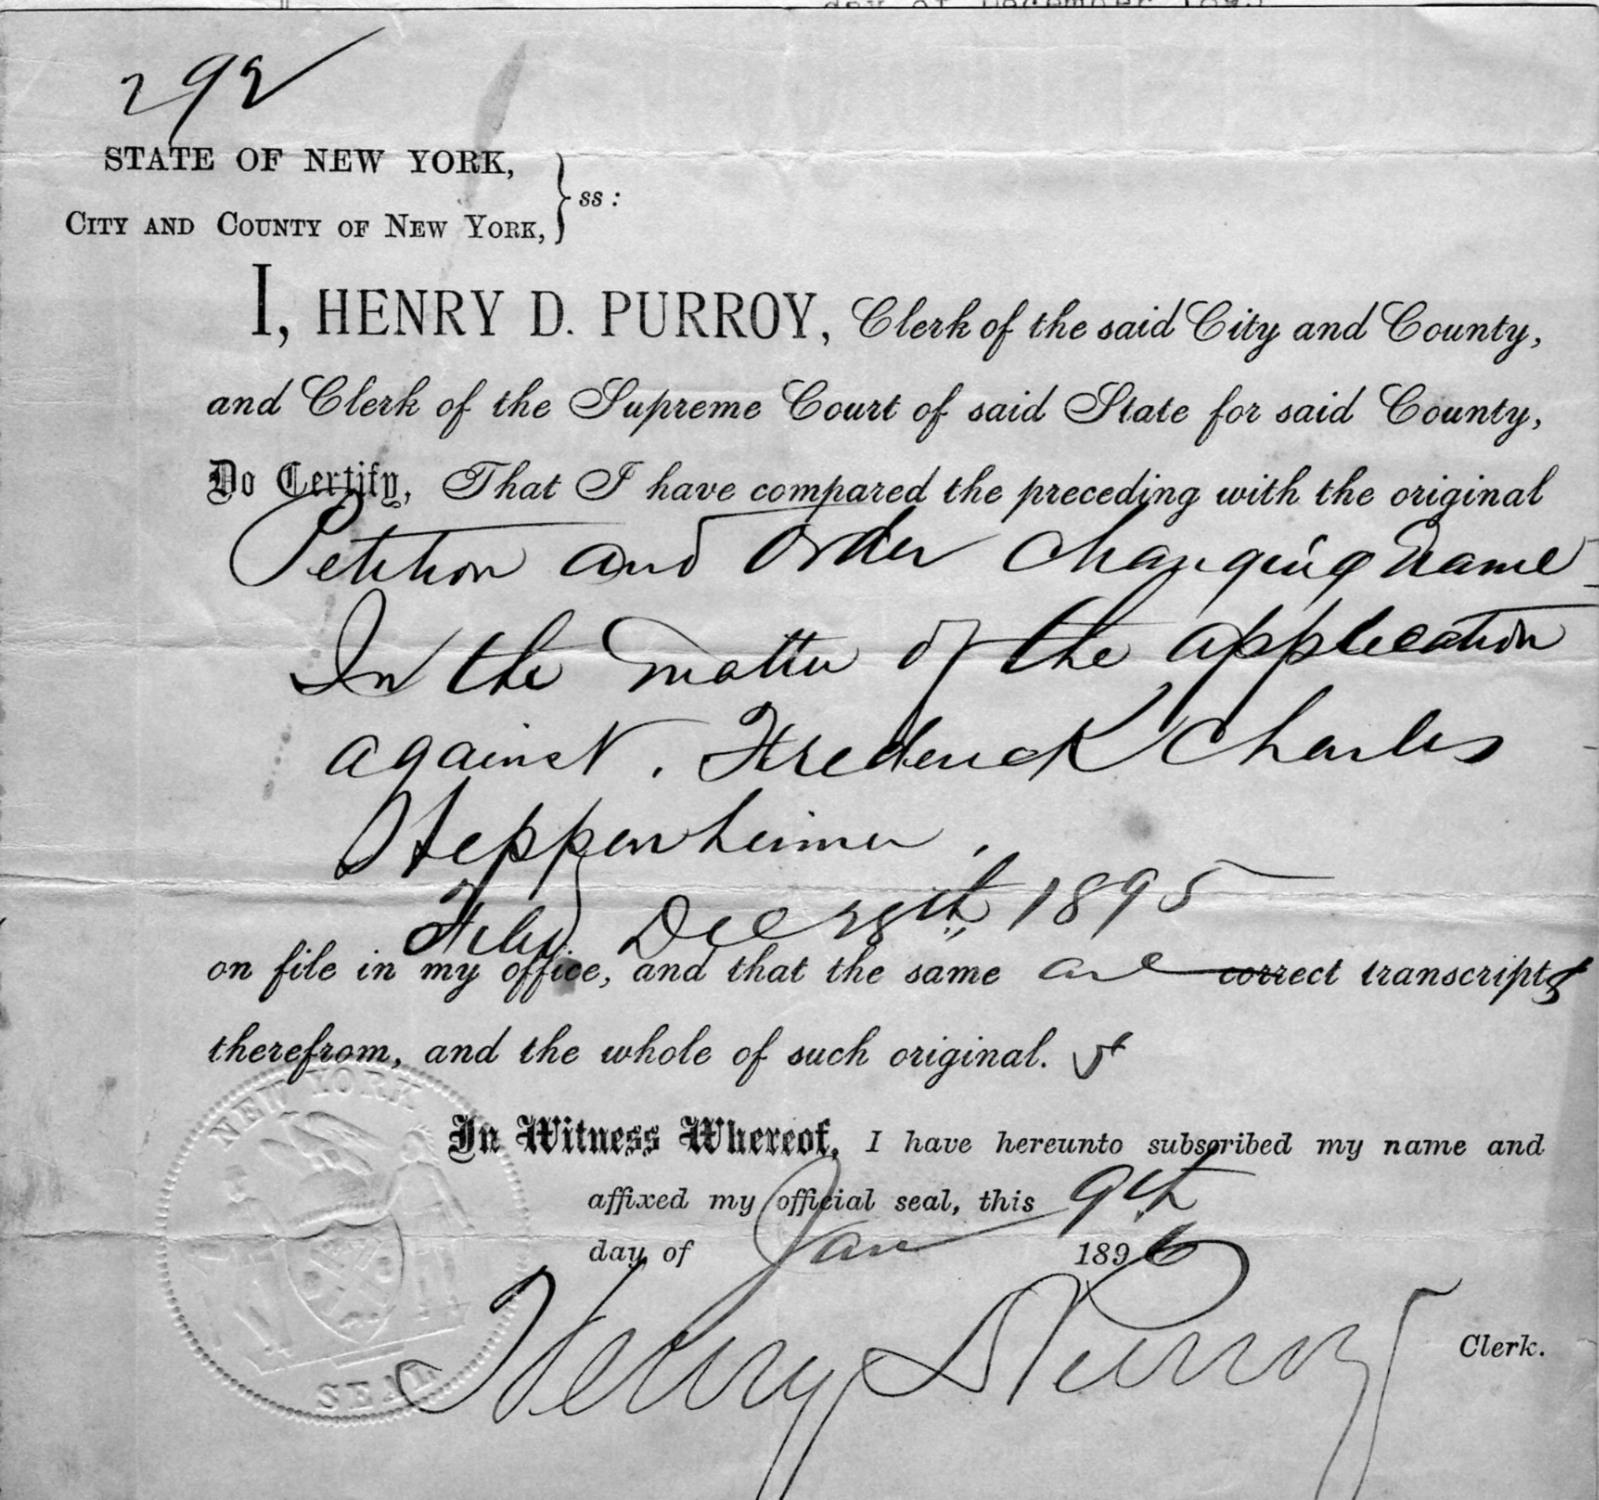 day of December 1895
292
STATE OF NEW YORK,
CITY AND COUNTY OF NEW YORK, } ss :
I, HENRY D. PURROY, Clerk of the said City and County,
and Clerk of the Supreme Court of said State for said County,
Do Certify, That I have compared the preceding with the original
Petition and Order Changing Name
In the matter of the application
against . Frederick Charles
Heppenheimer .
Filed Dec 28th 1895
on file in my office, and that the same are correct transcripts
therefrom, and the whole of such original.
In Witness Whereof, I have hereunto subscribed my name and
affixed my official seal, this 9th
day of Jan 1896
Henry D Purroy
Clerk.
NEW YORK
SEAL